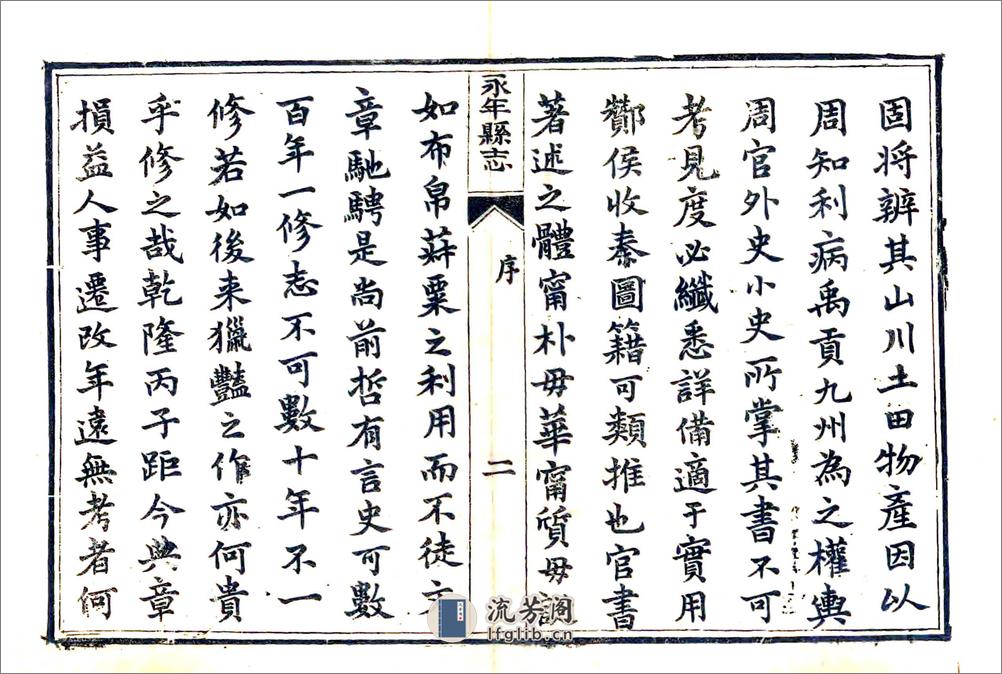 固将辨其山川土田物產因以
周知利病禹貢九州為之權輿
周官外史小史所掌其書不可
考見度必纖悉詳備適于實用
酇侯收秦圖籍可類推也官書
著述之體甯朴毋華甯質毋
永年縣志
序
二
如布帛菽粟之利用而不徒
章馳騁是尚前哲有言史可數
百年一修志不可數十年不一
修若如後来獵豔之作亦何貴
乎修之哉乾隆丙子距今典章
損益人事遷改年遠無考者何
流芳閣
lfglib.cn